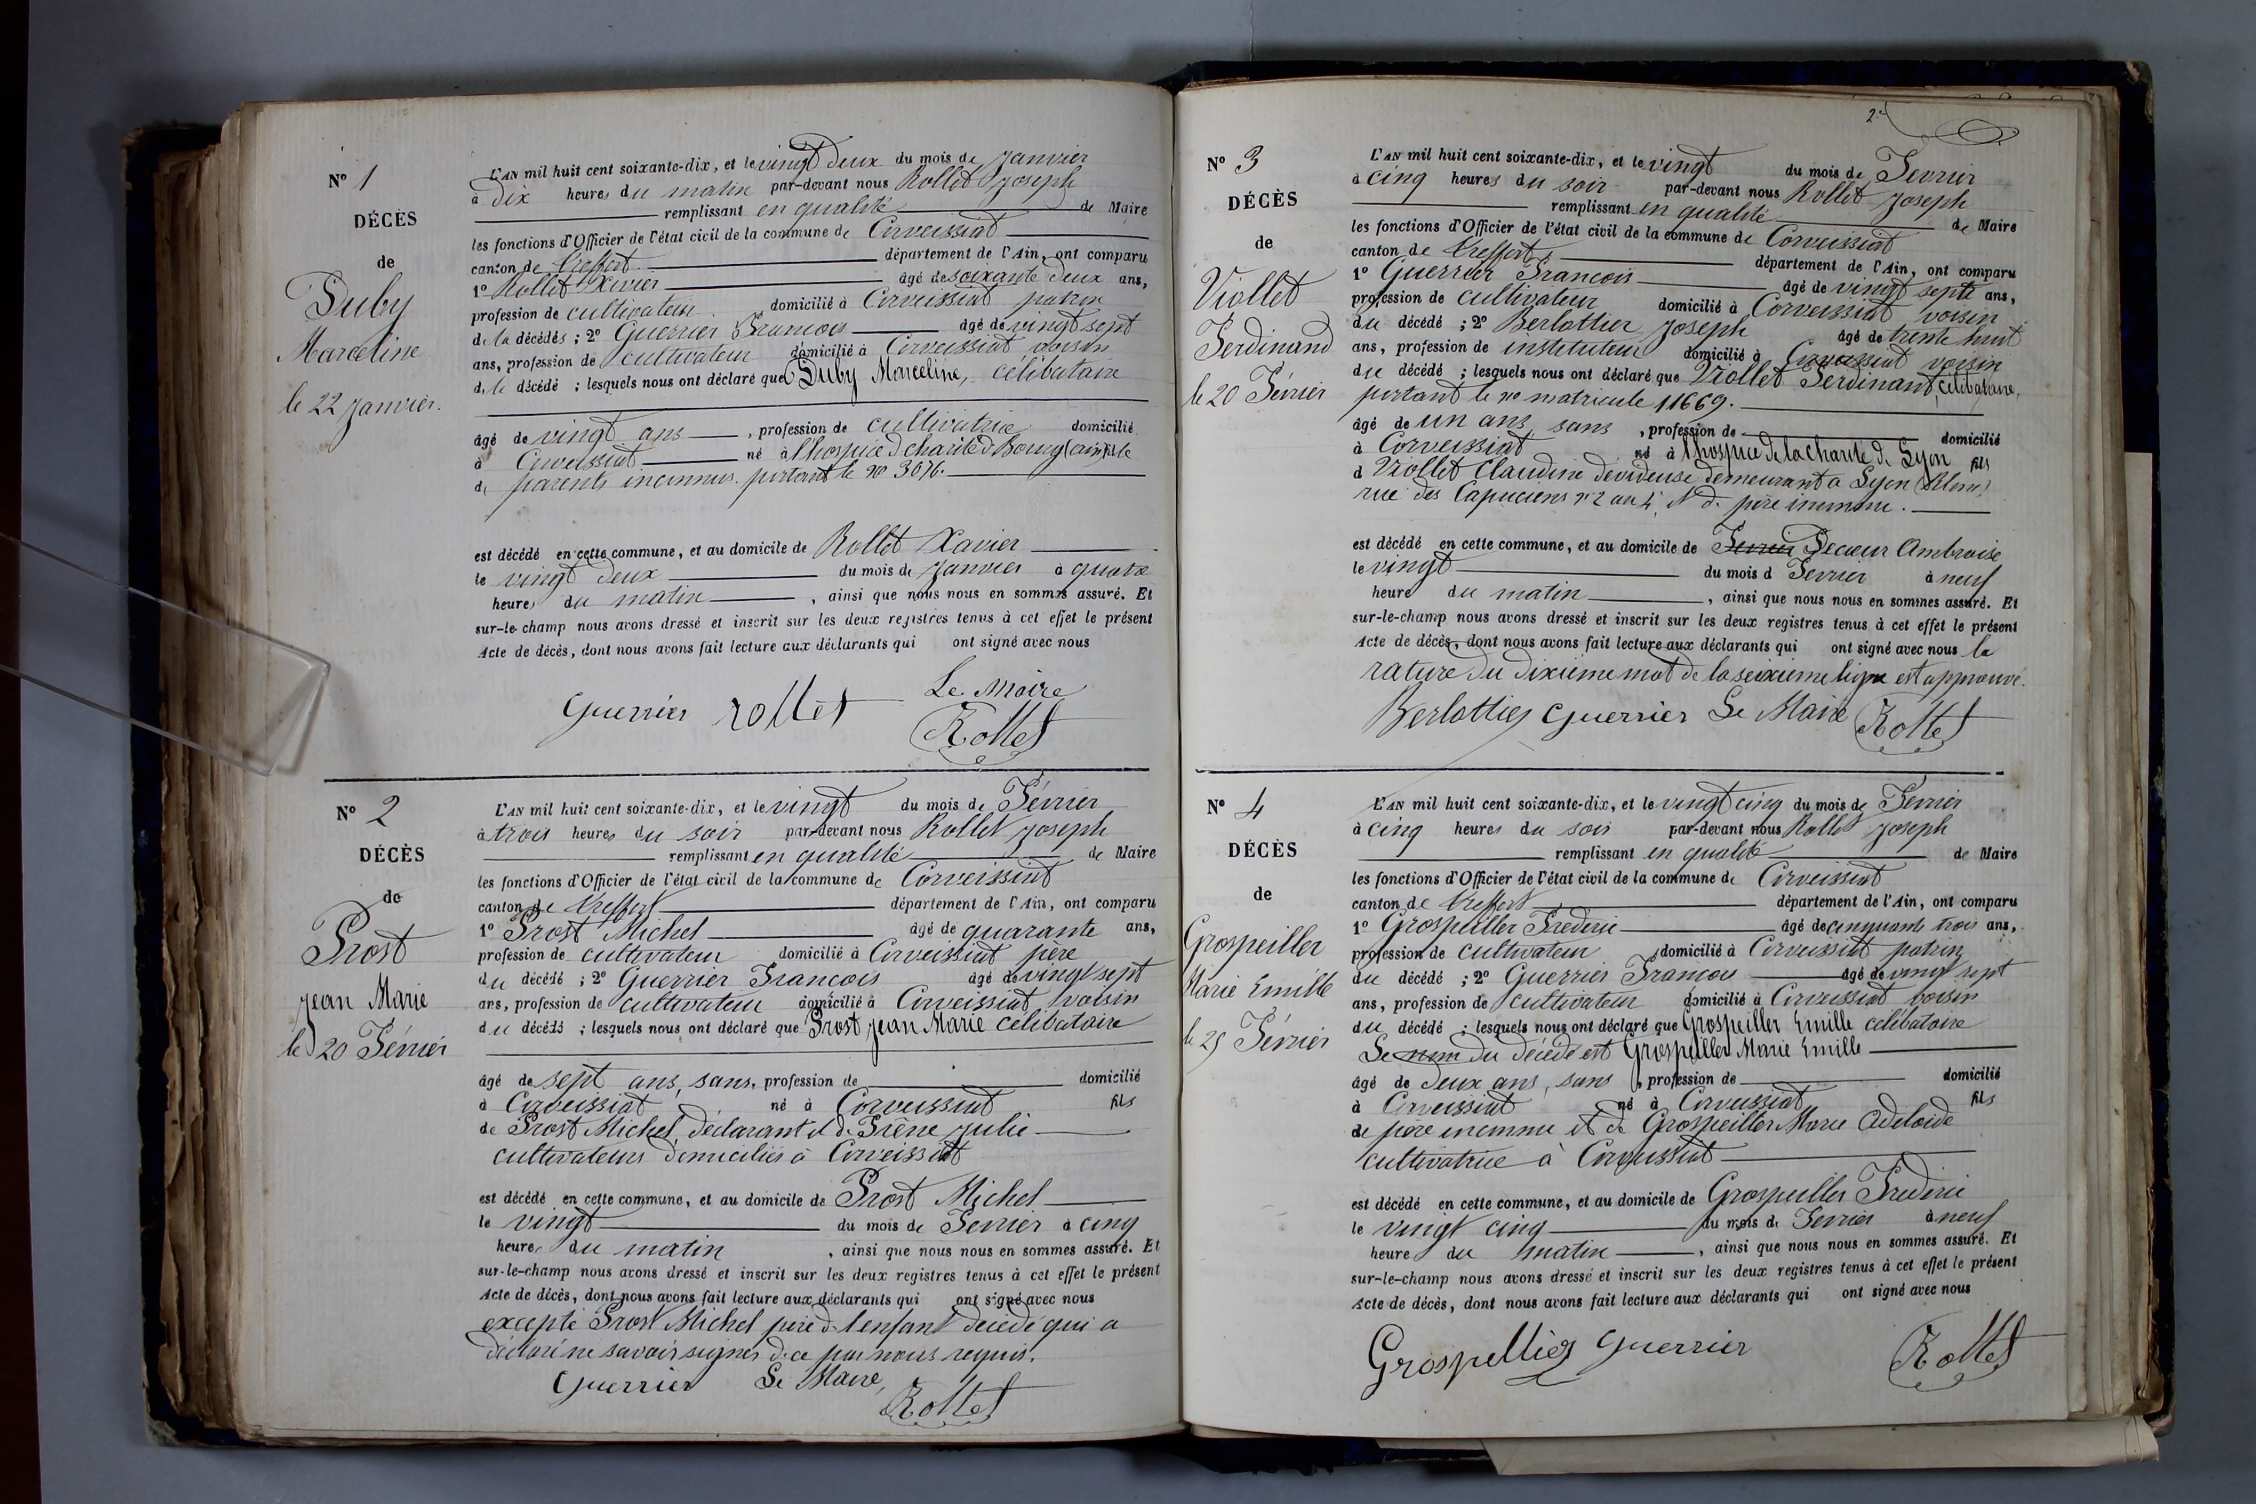 N° 1
DÉCÈS
de
Duby
Marceline
le 22 Janvier.
L'AN mil huit cent soixante-dix, et le vingt deux du mois de Janvier
à dix heures du matin par-devant nous Rollet Joseph
remplissant en qualité de Maire
les fonctions d'Officier de l'état civil de la commune de Corveissiat
canton de Treffort département de l'Ain, ont comparu
1° Rollet Xivier âgé de soixante deux ans,
profession de cultivateur domicilié à Corveissiat patron
de la décédés ; 2° Guerrier Francois âgé de vingt sept
ans, profession de cultivateur domicilié à Corveissiat voisin
de le décédé ; lesquels nous ont déclaré que Duby Marceline, célibataire
âgé de vingt ans, profession de cultivatrice domicilié
à Corveissiat né à l'hospice d charité d Bourg (ain) fille
de parents inconnus. portant le no 3076.
est décédé en cette commune, et au domicile de Rollet Xavier
le vingt deux du mois de Janvier à quatre
heures du matin, ainsi que nous nous en sommes assuré. Et
sur-le-champ nous avons dressé et inscrit sur les deux registres tenus à cet effet le présent
Acte de décès, dont nous avons fait lecture aux déclarants qui ont signé avec nous
Le Maire
Guerrier rollet Rollet
N° 2
DÉCÈS
de
Prost
Jean Marie
le 20 Février
L'AN mil huit cent soixante-dix, et le vingt du mois de Février
à trois heures du soir par-devant nous Rollet Joseph
remplissant en qualité de Maire
les fonctions d'Officier de l'état civil de la commune de Corveissiat
canton de Treffort département de l'Ain, ont comparu
1° Prost Michel âgé de quarante ans,
profession de cultivateur domicilié à Corveissiat père
du décédé ; 2° Guerrier Francois âgé de vingt sept
ans, profession de cultivateur domicilié à Corveissiat voisin
du décédé ; lesquels nous ont déclaré que Prost Jean Marie célibataire
âgé de sept ans, sans, profession de domicilié
à Corveissiat né à Corveissiat fils
de Prost Michel, déclarant et d Frène Julie
cultivateurs domiciliés à Corveissiat
est décédé en cette commune, et au domicile de Prost Michel
le vingt du mois de Fevrier à cinq
heures du matin, ainsi que nous nous en sommes assuré. Et
sur-le-champ nous avons dressé et inscrit sur les deux registres tenus à cet effet le présent
Acte de décès, dont nous avons fait lecture aux déclarants qui ont signé avec nous
excepté Prost Michel père d l'enfant décédé qui a
déclaré ne savoir signer de ce par nous requis.
Guerrier Le Maire,
Rollet
2e
N° 3
DÉCÈS
de
Viollet
Ferdinand
le 20 Février
L'AN mil huit cent soixante-dix, et le vingt du mois de Fevrier
à cinq heures du soir par-devant nous Rollet Joseph
remplissant en qualité de Maire
les fonctions d'Officier de l'état civil de la commune de Corveissiat
canton de Treffort, département de l'Ain, ont comparu
1° Guerrier Francois âgé de vingt septe ans,
profession de cultivateur domicilié à Corveissiat voisin
du décédé ; 2° Berlottier Joseph âgé de trente huit
ans, profession de instituteur domicilié à Corveissiat voisin
du décédé ; lesquels nous ont déclaré que Viollet Ferdinant, célibataire,
portant le no matricule 11669.
âgé de un ans, sans, profession de domicilié
à Corveissiat né à l'hospice de la charité de Lyon fils
d Viollet Claudine dévideuse demeurant à Lyon (Rhone)
rue des Capuciens no 2 au 4e, et d. père inconnu.
est décédé en cette commune, et au domicile de Fevrier Decœur Ambroise
le vingt du mois d Fevrier à neuf
heure du matin, ainsi que nous nous en sommes assuré. Et
sur-le-champ nous avons dressé et inscrit sur les deux registres tenus à cet effet le présent
Acte de décès, dont nous avons fait lecture aux déclarants qui ont signé avec nous la
rature du dixième mot de la seixième ligne est approuvé.
Berlottier Guerrier Le Maire Rollet
N° 4
DÉCÈS
de
Grospeiller
Marie Emille
le 25 Février
L'AN mil huit cent soixante-dix, et le vingt cinq du mois de Fevrier
à cinq heures du soir par-devant nous Rollet Joseph
remplissant en qualité de Maire
les fonctions d'Officier de l'état civil de la commune de Corveissiat
canton de Treffort département de l'Ain, ont comparu
1° Grospeiller Frederic âgé de cinquante trois ans,
profession de cultivateur domicilié à Corveissiat patron
du décédé ; 2° Guerrier Francois âgé de vingt sept
ans, profession de cultivateur domicilié à Corveissiat voisin
du décédé ; lesquels nous ont déclaré que Grospeiller Emille célibataire
Le nom du décédé est Grospeiller Marie Emille
âgé de deux ans, sans, profession de domicilié
à Corveissiat né à Corveissiat fils
de père inconnu et de Grospeiller Marie Adelaide
cultivatrice à Corveissiat
est décédé en cette commune, et au domicile de Grospeiller Frederic
le vingt cinq du mois de Fevrier à neuf
heure du matin, ainsi que nous nous en sommes assuré. Et
sur-le-champ nous avons dressé et inscrit sur les deux registres tenus à cet effet le présent
Acte de décès, dont nous avons fait lecture aux déclarants qui ont signé avec nous
Grospellier Guerrier Rollet